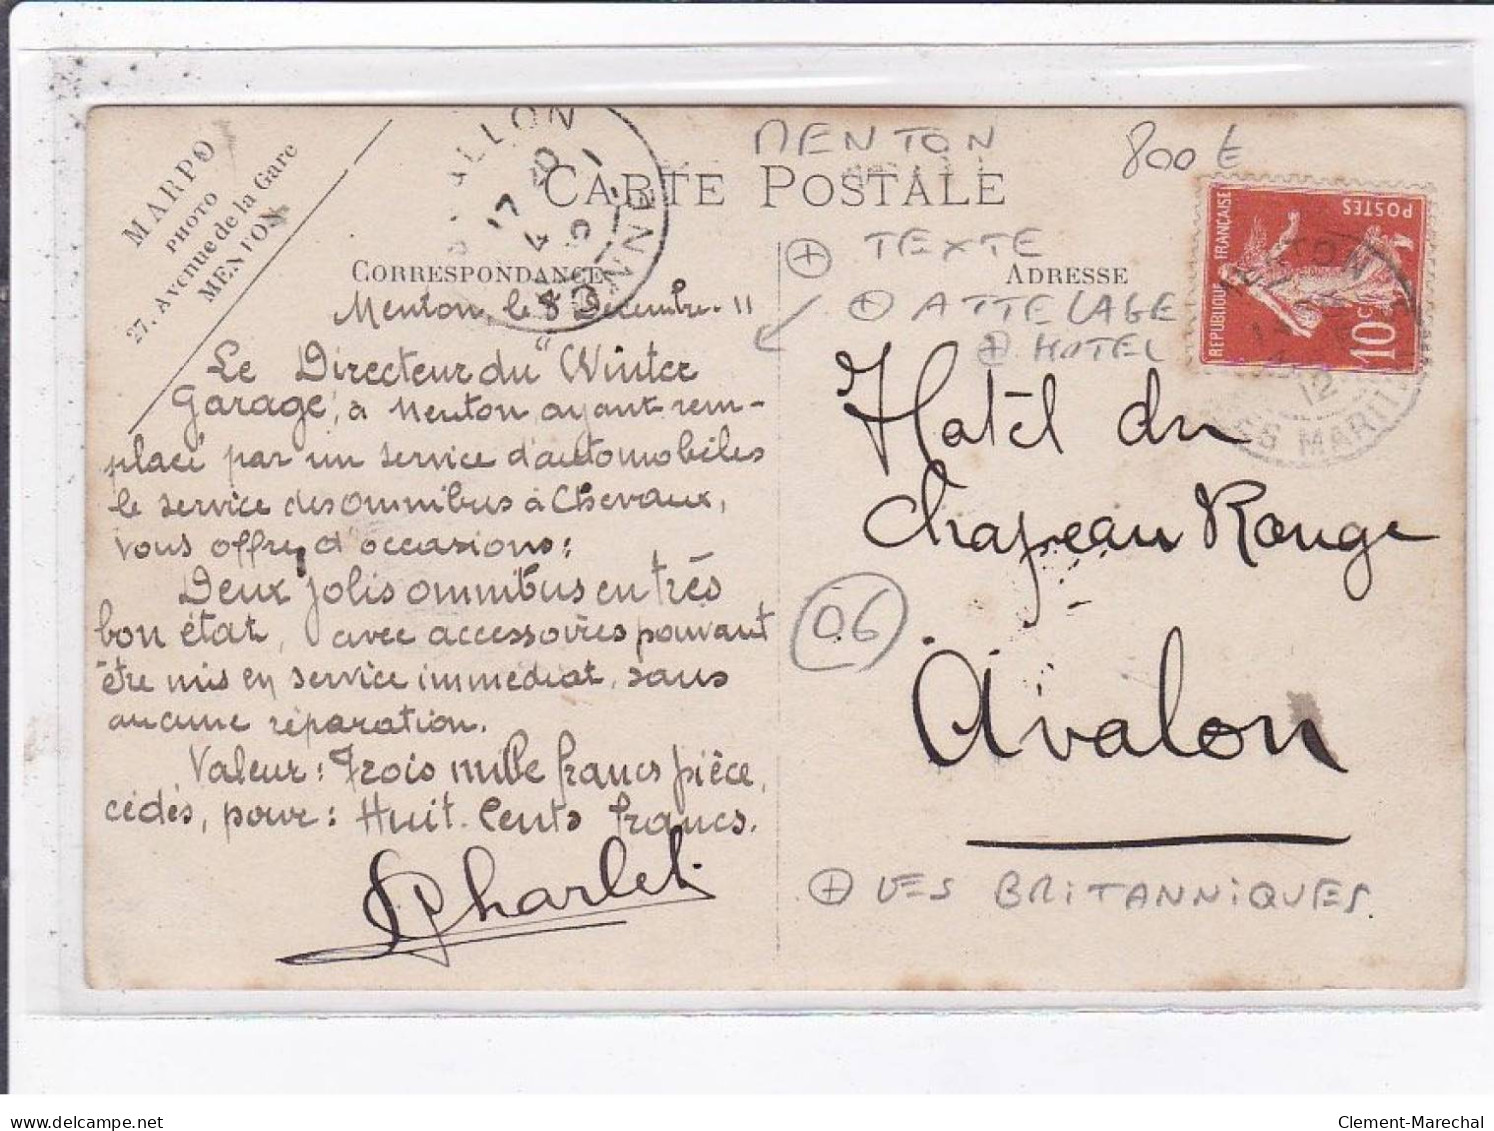 MARPO
PHOTO
27, Avenue de la Gare
MENTON
CARTE POSTALE
CORRESPONDANCE
ADRESSE
MENTON
800 €
+ TEXTE
+ ATTELAGE
+ HOTEL
RÉPUBLIQUE FRANÇAISE
POSTES
10c
12
MARIT
ALLON
17
4
Menton le 8 Décembre 11
Le Directeur du "Winter
Garage, à Menton, ayant rem-
placé par un service d'automobiles
le service des omnibus à Chevaux,
vous offre d'occasions:
Deux jolis omnibus en très
bon état, avec accessoires pouvant
être mis en service immédiat, sans
aucune réparation.
Valeur: Trois mille francs pièce,
cédés, pour: Huit-Cents francs.
Charlet
Hotel du
Chapeau Rouge
Avalon
06
+ LES BRITANNIQUES
delcampe.net
Clement-Marechal